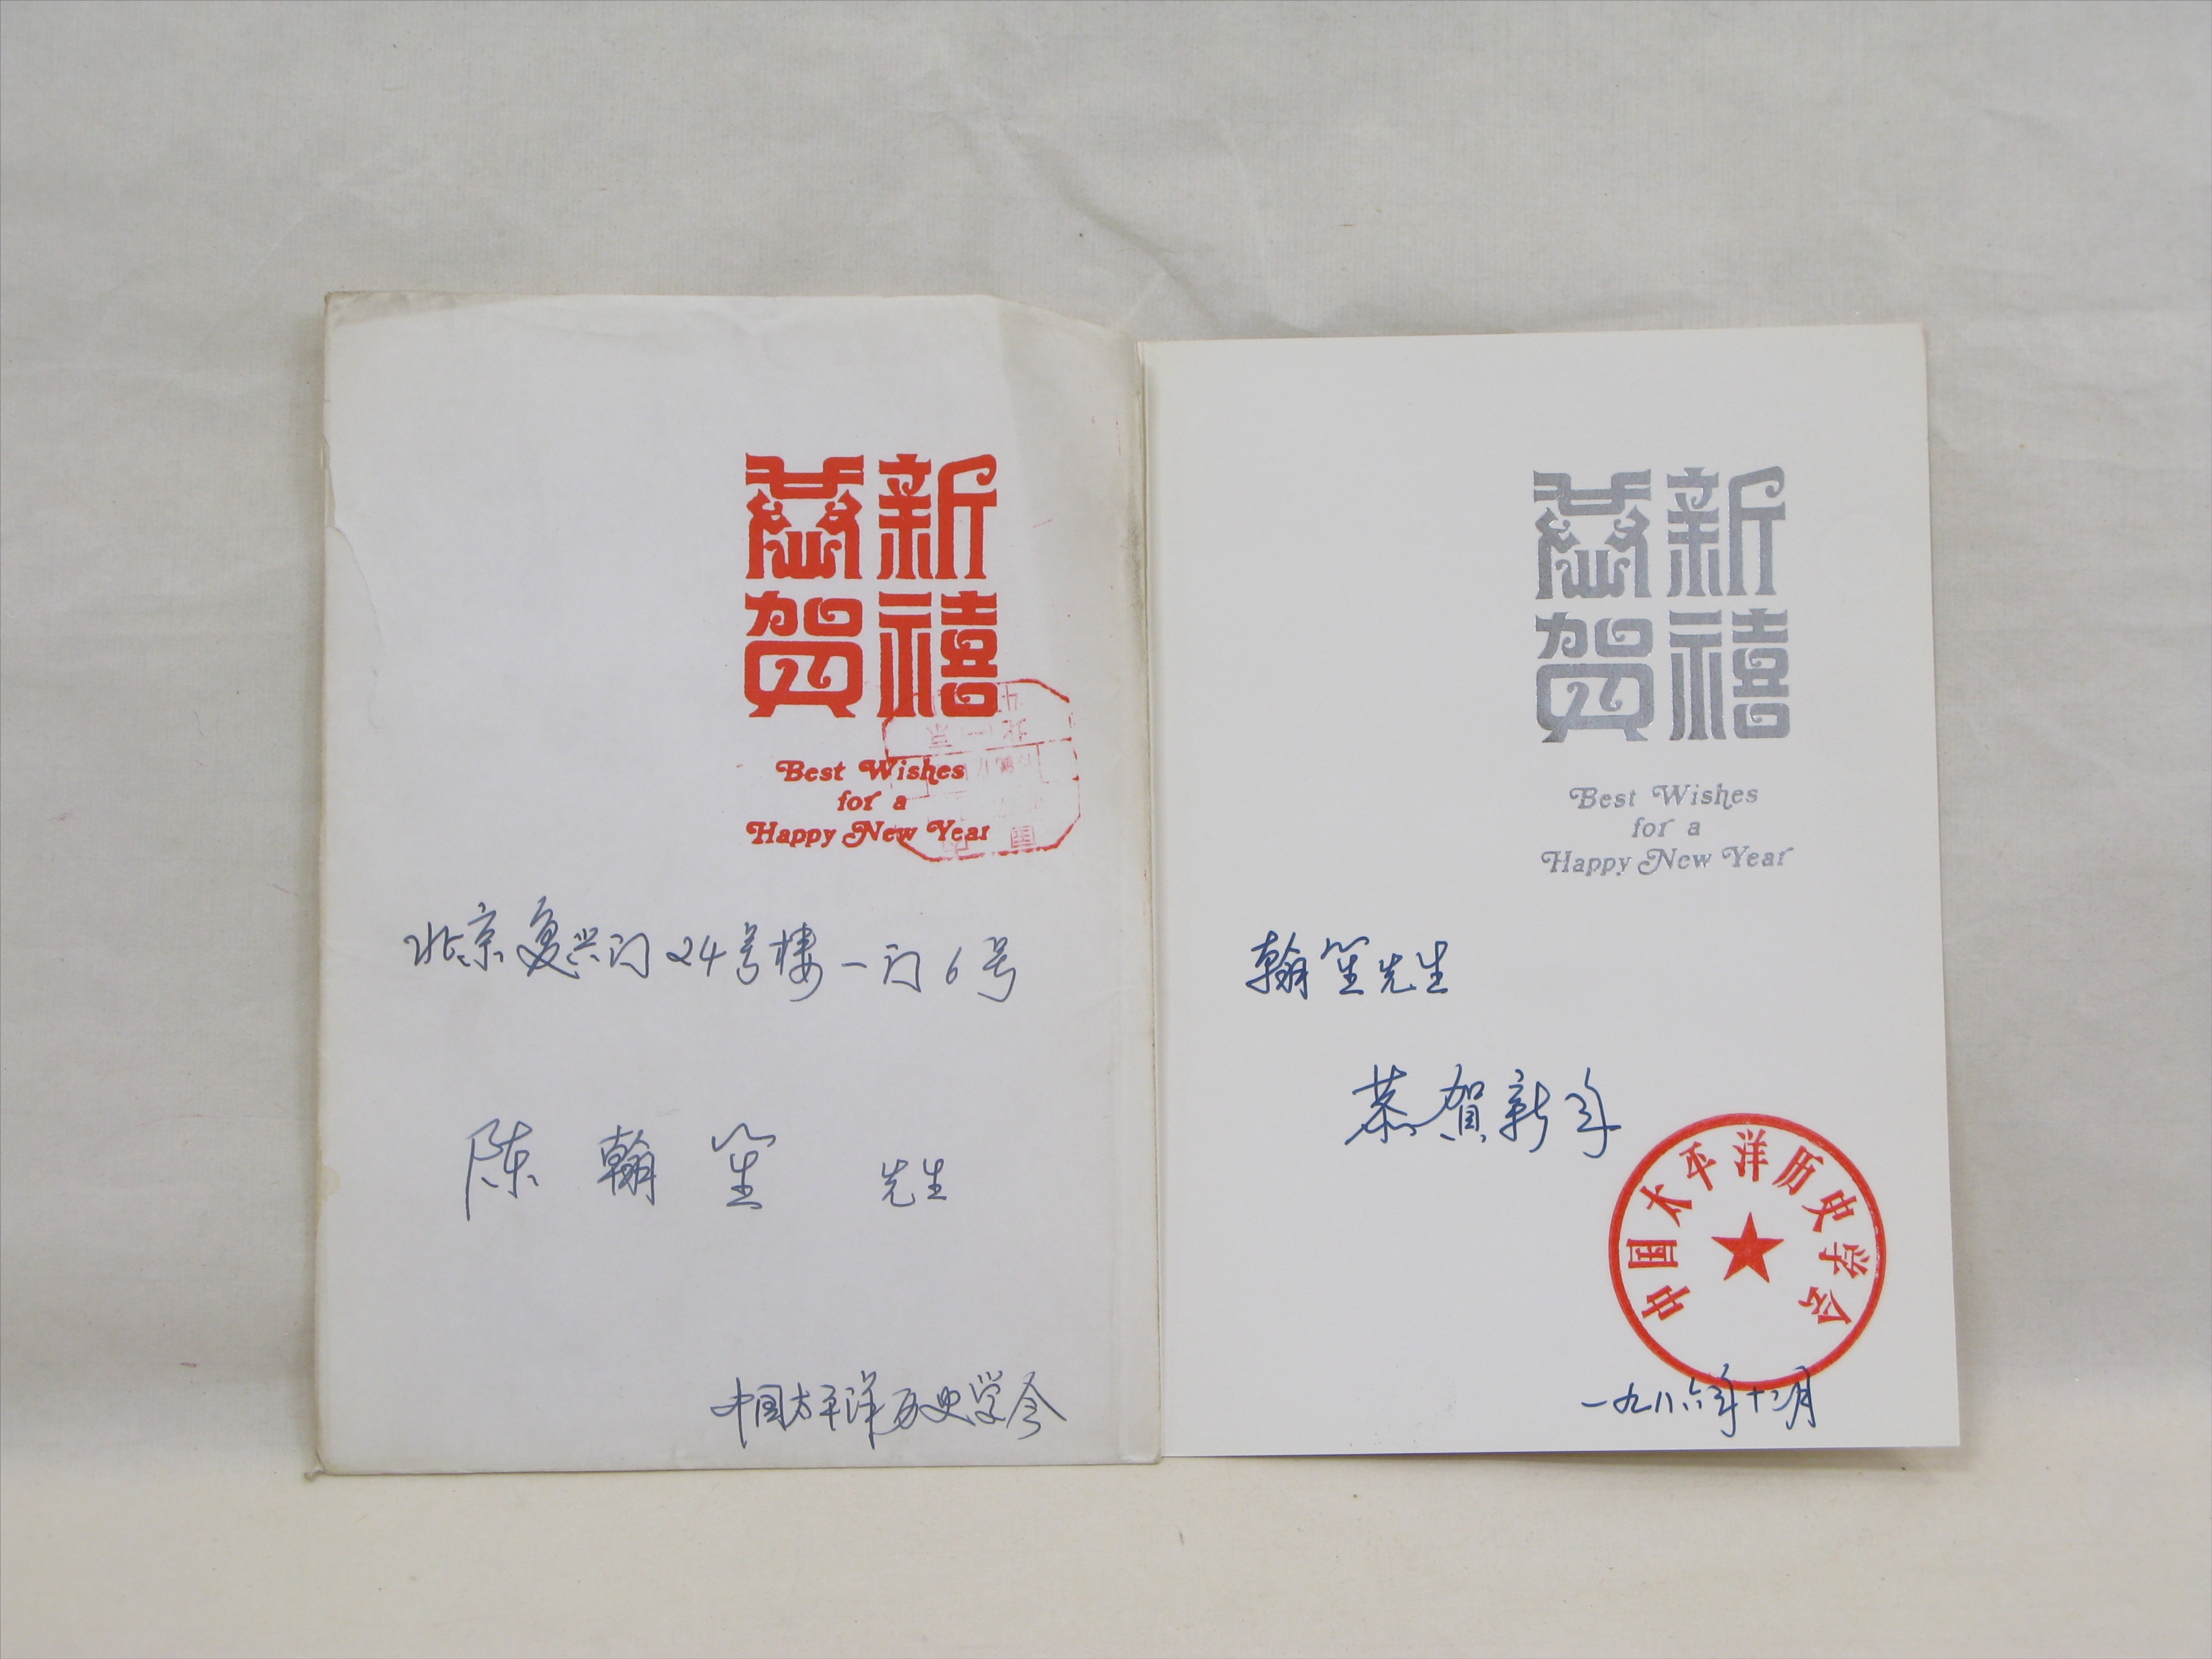 恭贺
新禧
Best Wishes
for a
Happy New Year
北京复兴门24号楼一门6号
陈翰笙 先生
中国太平洋历史学会
恭贺
新禧
Best Wishes
for a
Happy New Year
翰笙先生
恭贺新年
中国太平洋历史学会
一九八六年十二月